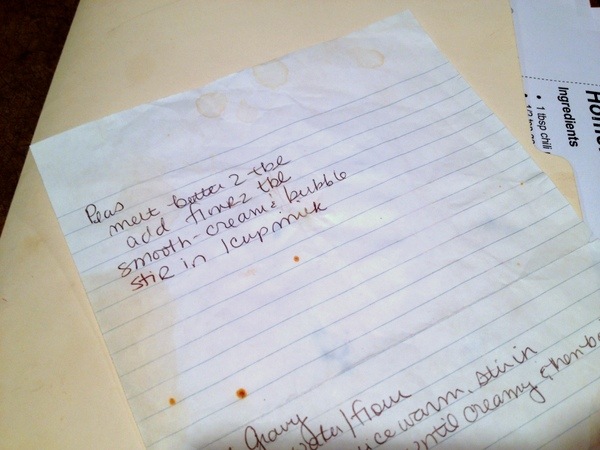 Peas
melt butter 2 tbe
add flour 2 tbe
smooth-cream & bubble
stir in 1 cup milk
Gravy
water/flour
warm, stir in
until creamy & then
Ingredients
• 1 tbsp chili